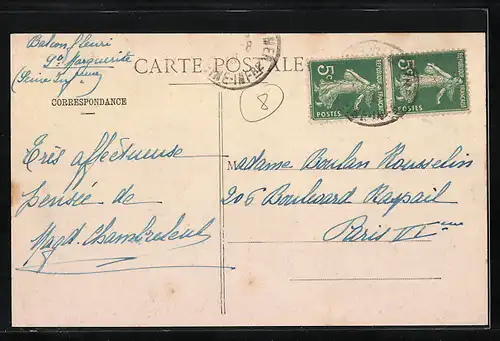 Balcon fleuri
Ste Marguerite
(Seine Infre)
CARTE POSTALE
CORRESPONDANCE
8
5c
REPUBLIQUE FRANÇAISE
POSTES
5c
REPUBLIQUE FRANÇAISE
POSTES
Très affectueuse
pensée de
Magd.
Madame Boulan Rousselin
206 Boulevard Raspail
Paris